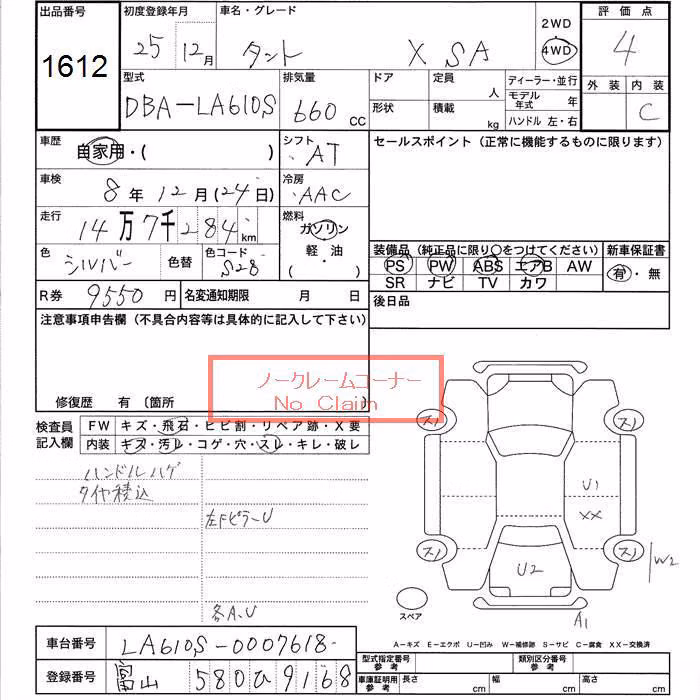 出品番号 1612
初度登録年月 25年 12月
車名・グレード タント X SA
2WD
4WD
評価点 4
外装 内装 C
型式 DBA-LA610S
排気量 660 CC
ドア
形状
定員 人
積載 kg
ディーラー・並行
モデル年式 年
ハンドル 左・右
車歴 自家用・( )
シフト AT
セールスポイント（正常に機能するものに限ります）
車検 8年 12月(24日)
冷房 AAC
走行 14万7千284km
燃料 ガソリン
軽・油
・( )
色 シルバー
色替
色コード S28
装備品（純正品に限り〇をつけてください）
PS PW ABS エアB AW
SR ナビ TV カワ
新車保証書
有・無
R券 9550円
名変通知期限 月 日
後日品
注意事項申告欄（不具合内容等は具体的に記入して下さい）
ノークレームコーナー
No Claim
修復歴 有 〔箇所
検査員記入欄
FW キズ・飛石・ヒビ割・リペア跡・X要
内装 キズ・汚レ・コゲ・穴・スレ・キレ・破レ
ハンドルハゲ
タイヤ積込
左FピラーU
各A.U
スノ スノ
U1
XX
スノ スノ
U2
W2
A1
スペア
A-キズ E-エクボ U-凹み W-補修跡 S-サビ C-腐食 XX-交換済
車台番号 LA610S-0007618
登録番号 富山 580 ひ 9168
型式指定番号 参考
類別区分番号 参考
車庫証明用 参考 長さ cm 幅 cm 高さ cm